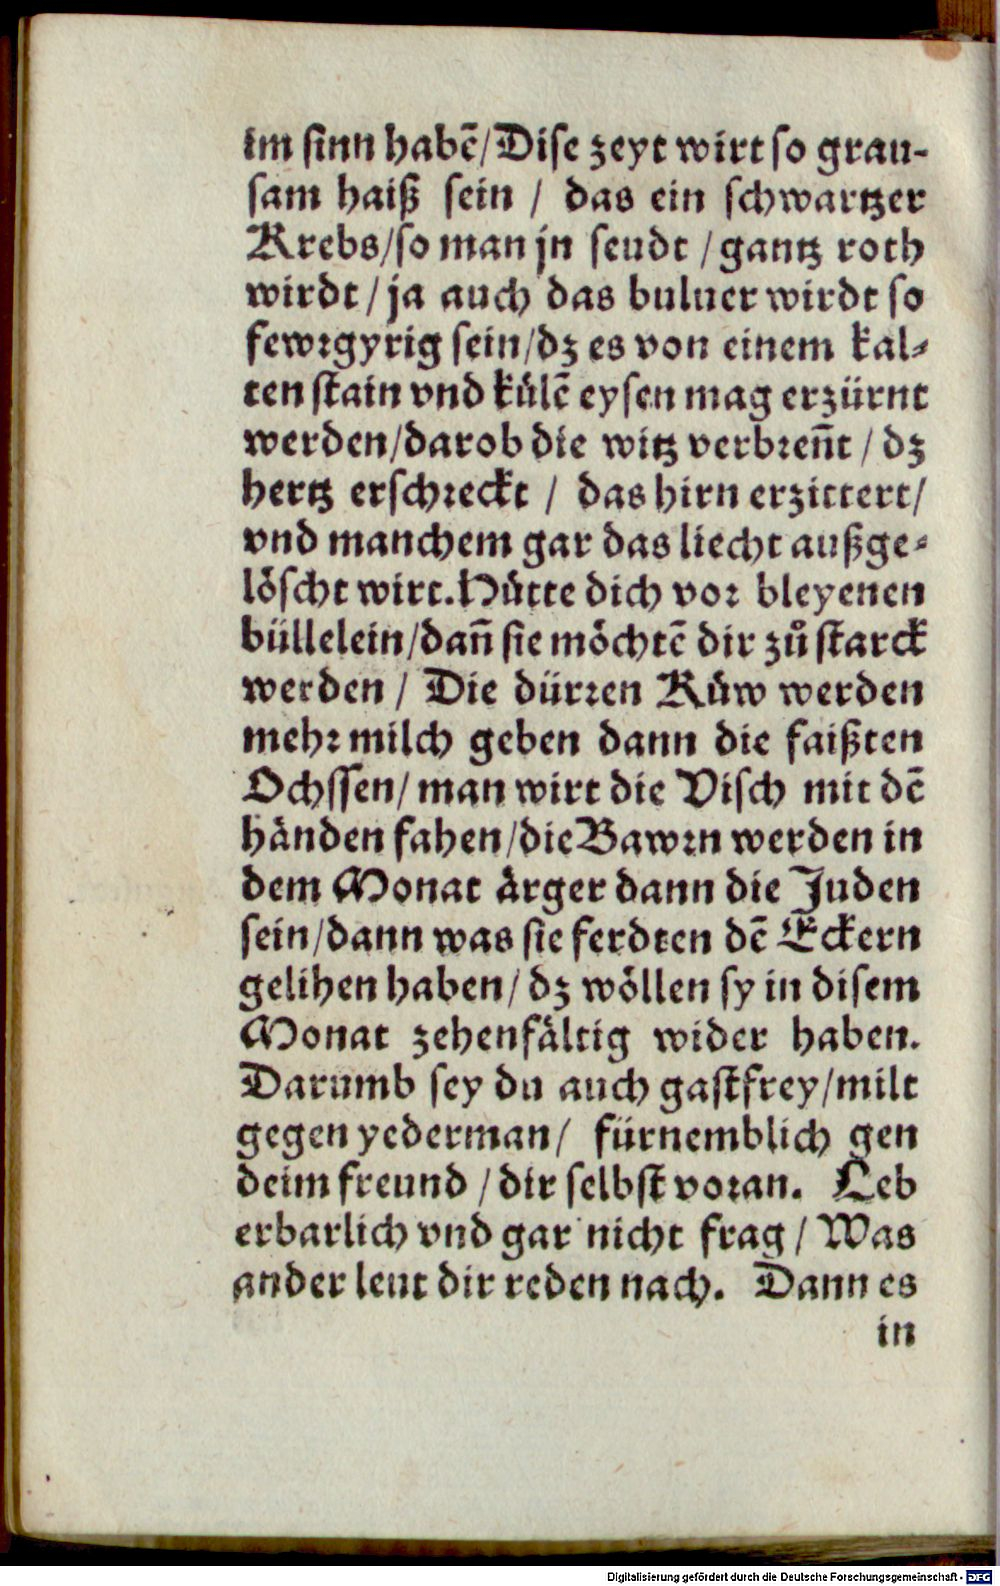 im sinn habẽ/Dise zeyt wirt so grau-
sam haiß sein / das ein schwartzer
Krebs/so man jn seudt /gantz roth
wirdt/ja auch das buluer wirdt so
fewrgyrig sein/dz es von einem kal-
ten stain vnd kůlẽ eysen mag erzürnt
werden/darob die witz verbreñt / dz
hertz erschreckt / das hirn erzittert/
vnd manchem gar das liecht außge-
löscht wirt. Hůtte dich vor bleyenen
büllelein/dañ sie möchtẽ dir zů starck
werden / Die dürren Kůw werden
mehr milch geben dann die faißten
Ochssen/man wirt die Visch mit dẽ
händen fahen/die Bawrn werden in
dem Monat ärger dann die Juden
sein/dann was sie ferdten dẽ Eckern
gelihen haben/dz wöllen sy in disem
Monat zehenfältig wider haben.
Darumb sey du auch gastfrey/milt
gegen yederman/ fürnemblich gen
deim freund /dir selbst voran. Leb
erbarlich vnd gar nicht frag/Was
ander leut dir reden nach. Dann es
in
Digitalisierung gefördert durch die Deutsche Forschungsgemeinschaft - DFG